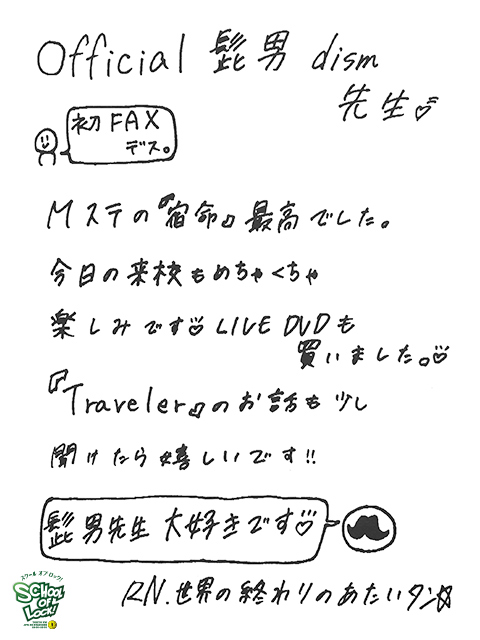 Official 髭男 dism
先生♂
初FAX
デス。
Mステの『宿命』最高でした。
今日の来校もめちゃくちゃ
楽しみです♡ LIVE DVDも
買いました。♡
『Traveler』のお話も少し
聞けたら嬉しいです!!
髭男先生 大好きです♡
RN.世界の終わりのあたいタン☆
スクール オブ ロック!
SCHOOL OF LOCK!